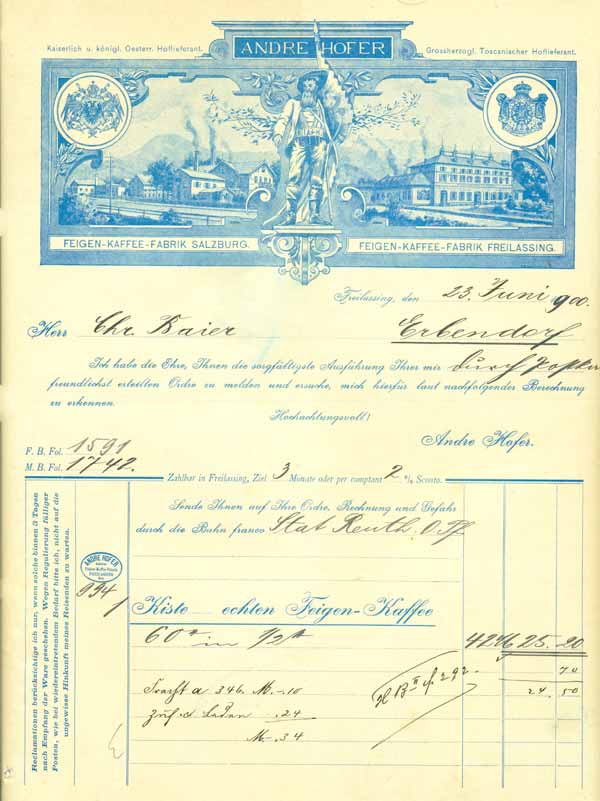 Kaiserlich u. königl. Oesterr. Hoflieferant.
ANDRE HOFER
Grossherzogl. Toscanischer Hoflieferant.
FEIGEN-KAFFEE-FABRIK SALZBURG.
FEIGEN-KAFFEE-FABRIK FREILASSING.
Freilassing, den 23. Juni 900.
Herr Chr. Baier
Erbendorf
durch
Ich habe die Ehre, Ihnen die sorgfältigste Ausführung Ihrer mir
freundlichst erteilten Ordre zu melden und ersuche, mich hierfür laut nachfolgender Berechnung
zu erkennen.
Hochachtungsvoll!
Andre Hofer.
F. B. Fol. 1591
M. B. Fol. 1742.
Zahlbar in Freilassing, Ziel 3 Monate oder per comptant 2 % Sconto.
Sende Ihnen auf Ihre Ordre, Rechnung und Gefahr
durch die Bahn franco Stat. Reuth. O.Pf
Reclamationen berücksichtige ich nur, wenn solche binnen 3 Tagen
nach Empfang der Ware geschehen. Wegen Regulierung fälliger
Posten, wie bei wiedereintretendem Bedarf bitte ich, nicht auf die
ungewisse Hinkunft meines Reisenden zu warten.
ANDRE HOFER
FREILASSING
994
1 Kiste echten Feigen-Kaffee
60 in 1/2 42 M 25.20
70
Fracht a 34 k. M. -.10
24 50
-.24
M. -.34